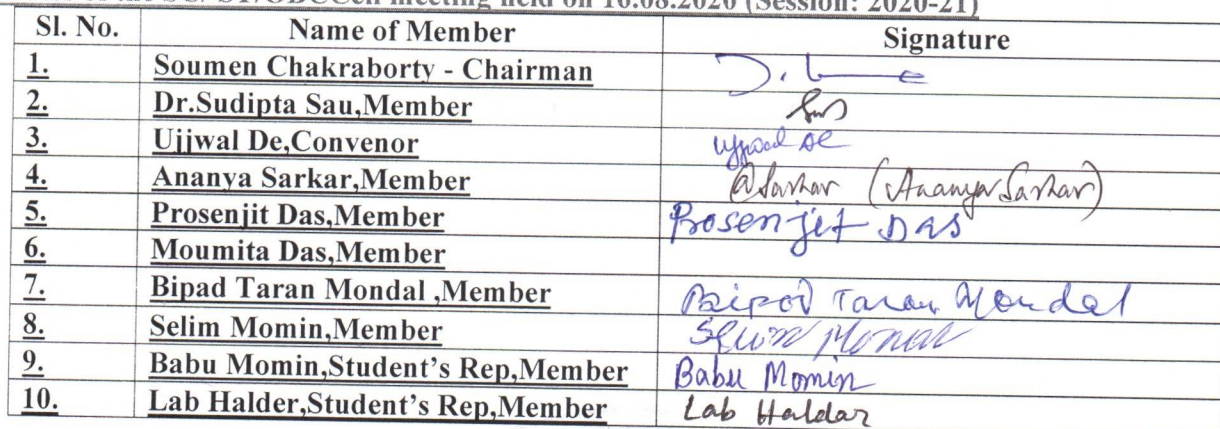 of the SC/ ST/OBCCell meeting held on 16.08.2020 (Session: 2020-21)
Sl. No. Name of Member Signature
1. Soumen Chakraborty - Chairman
2. Dr.Sudipta Sau,Member
3. Ujjwal De,Convenor Ujjwal De
4. Ananya Sarkar,Member @Sarkar (Ananya Sarkar)
5. Prosenjit Das,Member Prosenjit DAS
6. Moumita Das,Member
7. Bipad Taran Mondal ,Member Bipod Taran Mondal
8. Selim Momin,Member Selim Momin
9. Babu Momin,Student's Rep,Member Babu Momin
10. Lab Halder,Student's Rep,Member Lab Haldar